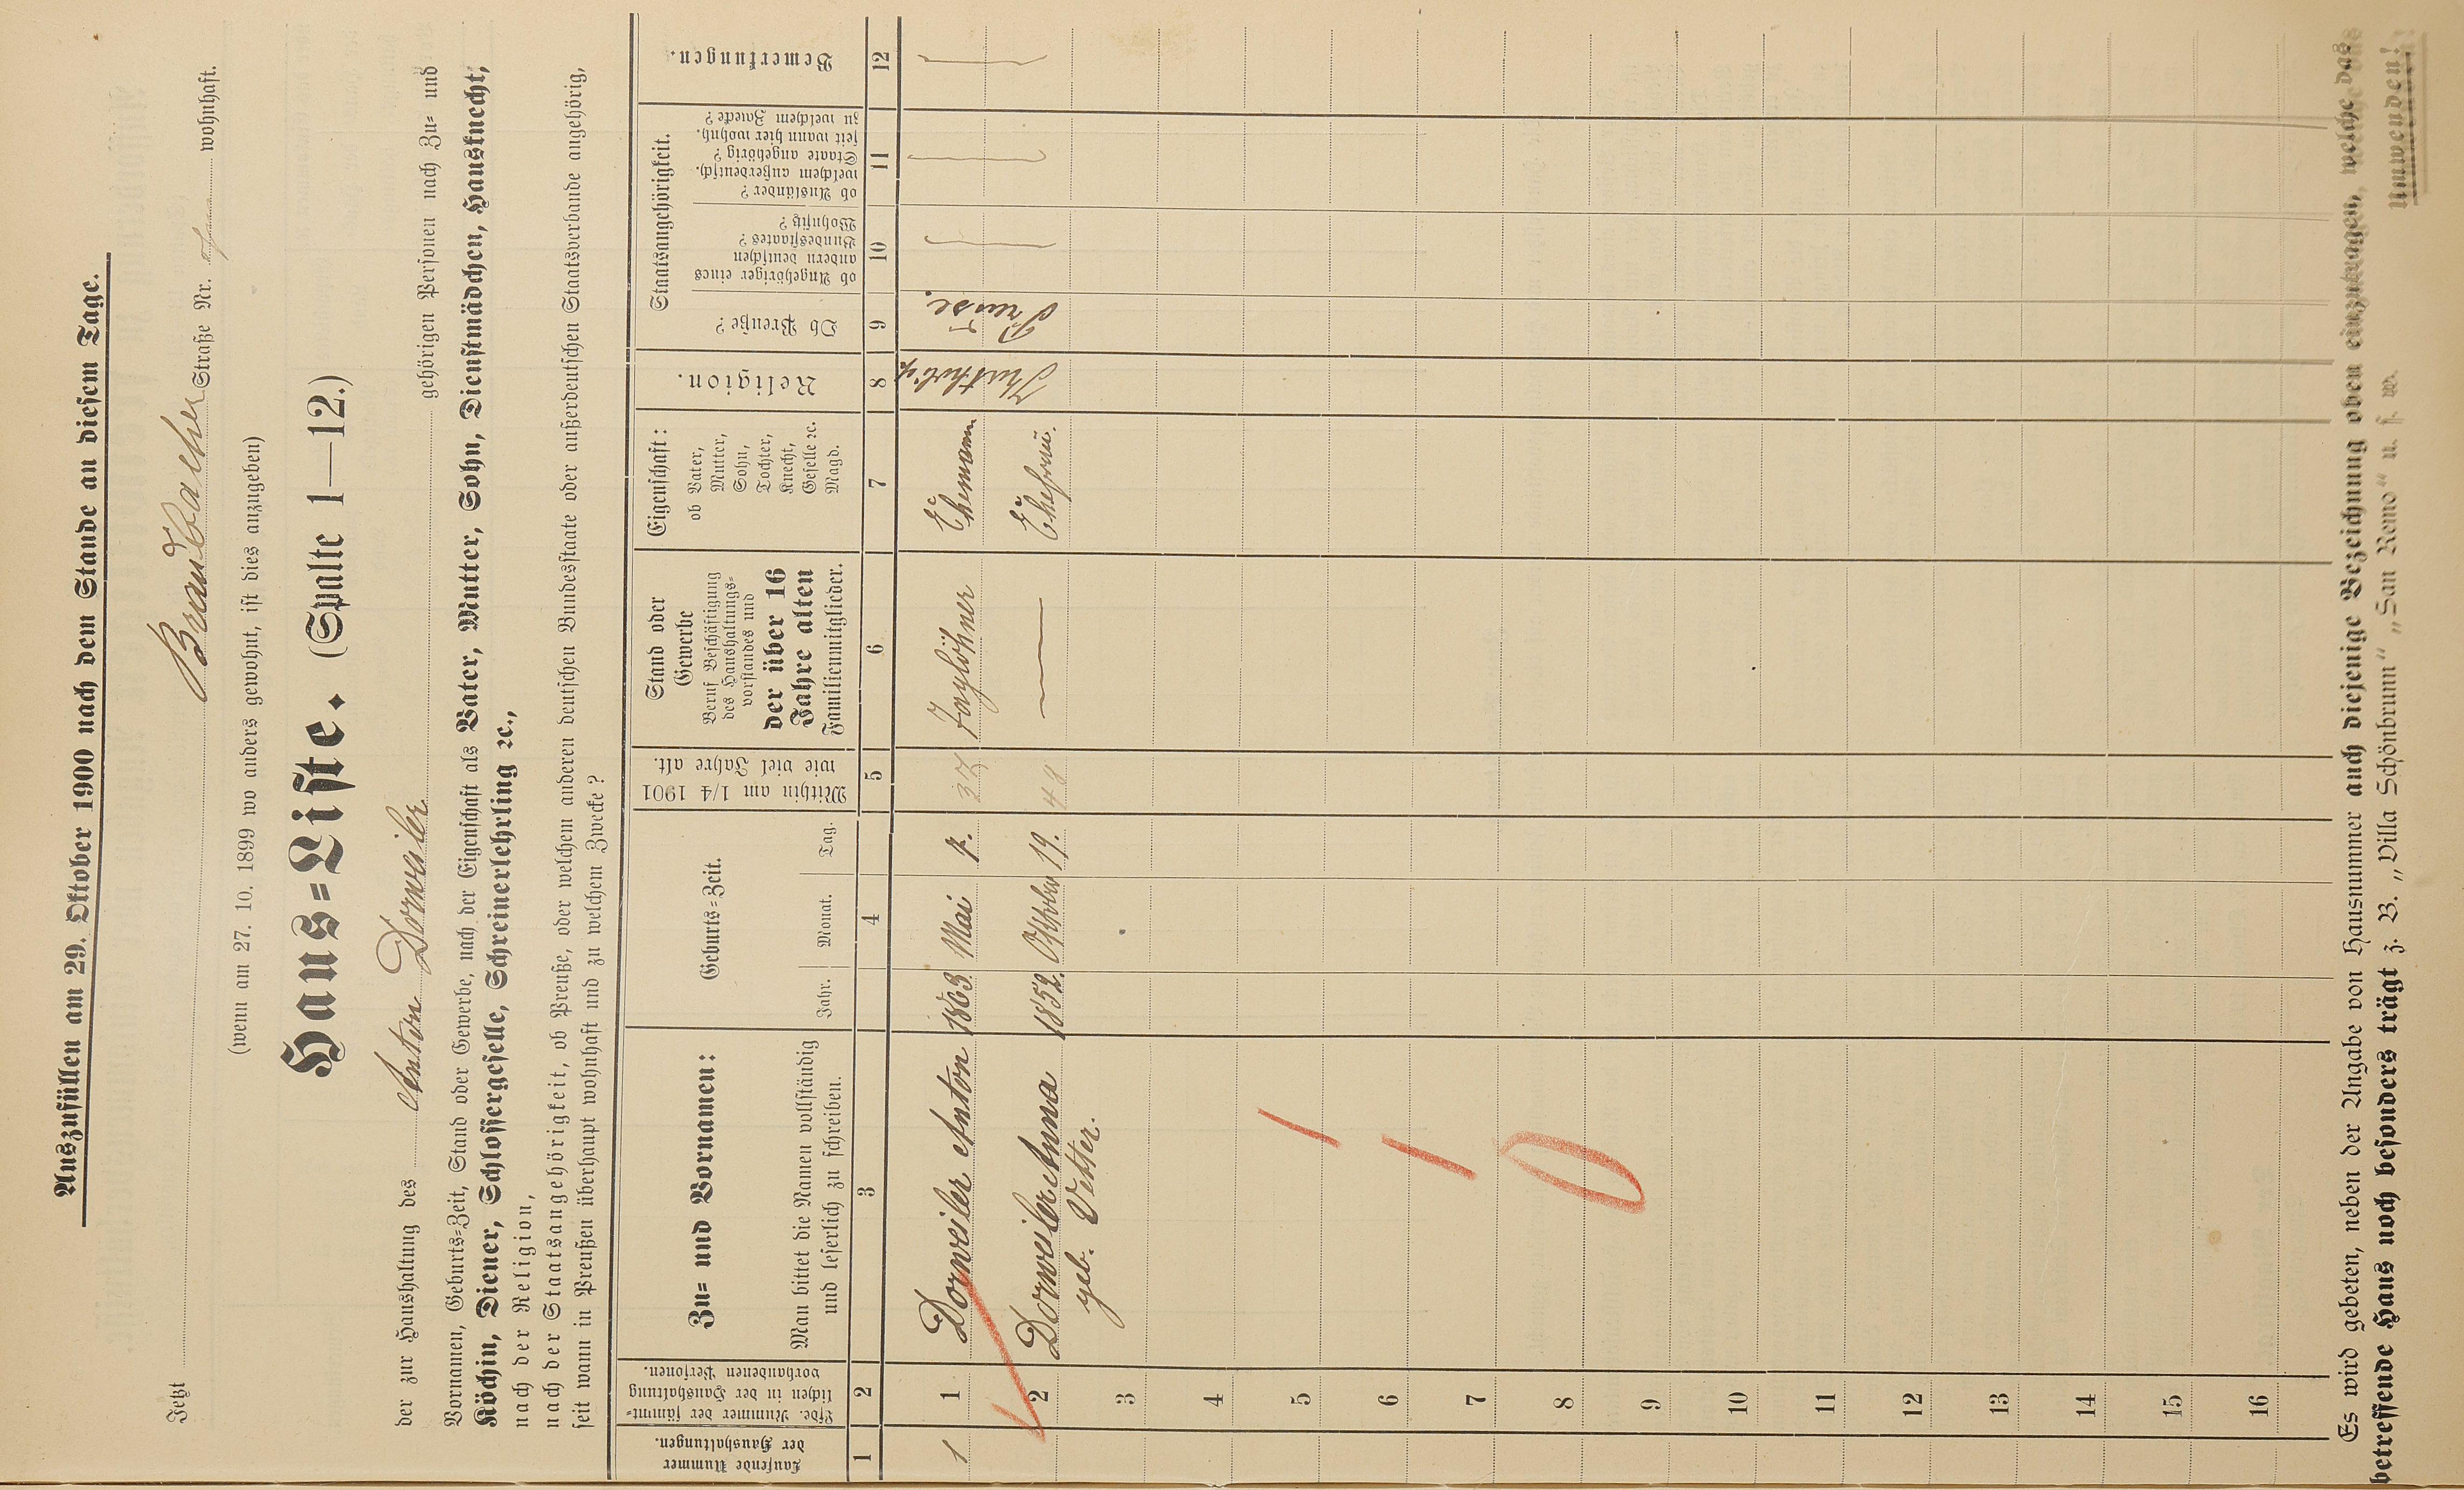 Auszufüllen am 29. Oktober 1900 nach dem Stande an diesem Tage.
Jetzt Braubacher Straße Nr. wohnhaft.
(wenn am 27. 10. 1899 wo anders gewohnt, ist dies anzugeben)
Haus=Liste. (Spalte 1—12.)
der zur Haushaltung des Anton Dorweiler gehörigen Personen nach Zu= und
Vornamen, Geburts=Zeit, Stand oder Gewerbe, nach der Eigenschaft als Vater, Mutter, Sohn, Dienstmädchen, Hausknecht,
Köchin, Diener, Schlossergeselle, Schreinerlehrling ꝛc.,
nach der Religion,
nach der Staatsangehörigkeit, ob Preuße, oder welchem anderen deutschen Bundesstaate oder außerdeutschen Staatsverbande angehörig,
seit wann in Preußen überhaupt wohnhaft und zu welchem Zwecke?
Laufende Nummer
der Haushaltungen.
Lfde. Nummer der sämmt=
lichen in der Haushaltung
vorhandenen Personen.
Zu= und Vornamen:
Man bittet die Namen vollständig
und leserlich zu schreiben.
Geburts=Zeit.
Jahr. Monat. Tag.
Mithin am 1/4 1901
wie viel Jahre alt.
Stand oder
Gewerbe
Beruf Beschäftigung
des Haushaltungs=
vorstandes und
der über 16
Jahre alten
Familienmitglieder.
Eigenschaft:
ob Vater,
Mutter,
Sohn,
Tochter,
Knecht,
Geselle ꝛc.
Magd.
Religion.
Staatsangehörigkeit.
Ob Preuße?
ob Angehöriger eines
andern deutschen
Bundesstaates?
Wohnsitz?
ob Ausländer?
welchem außerdeutsch.
Staate angehörig?
seit wann hier wohnh.
zu welchem Zwecke?
Bemerkungen.
1 2 3 4 5 6 7 8 9 10 11 12
1 1 Dorweiler Anton 1863 Mai 7. 37 Taglöhner Ehemann Kathol. Preuse.
2 Dorweiler Anna 1852. Oktober 19. 48 — Ehefrau.
geb. Vetter.
3
4
5
6
7
8
9
10
11
12
13
14
15
16
1
1
0
Es wird gebeten, neben der Angabe von Hausnummer auch diejenige Bezeichnung oben einzutragen, welche das
betreffende Haus noch besonders trägt z. B. „Villa Schönbrunn“ „San Remo“ u. s. w.
Umwenden!